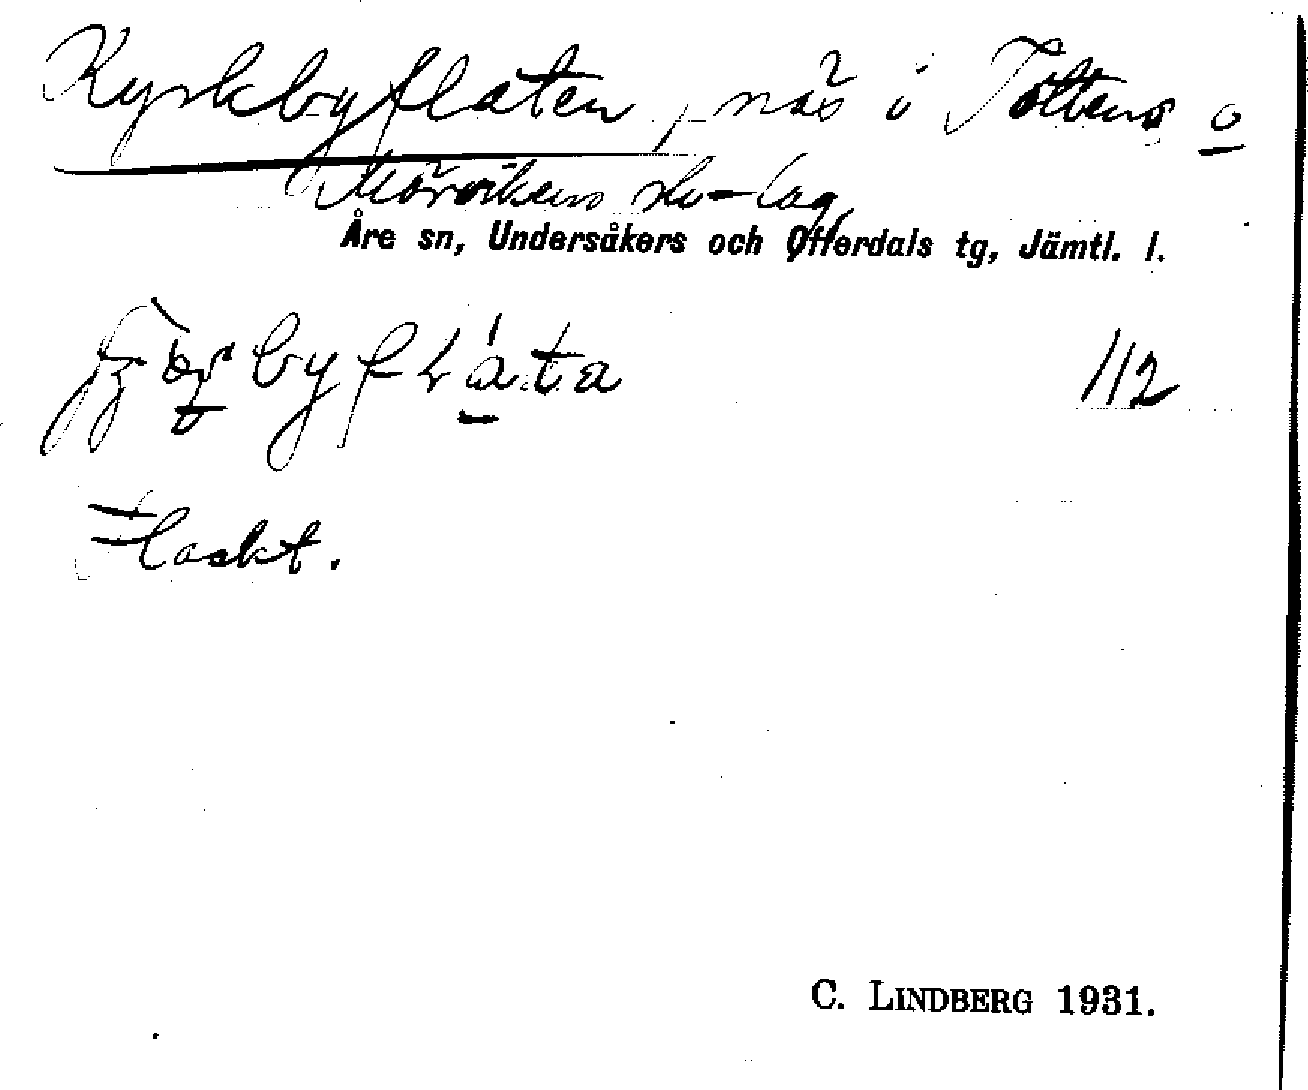 Kyrkbyflaten, näs i Tottens o
Mörvikens skv-lag,
Åre sn, Undersåkers och Offerdals tg, Jämtl. l.
112
Flaskt.
C. LINDBERG 1931.